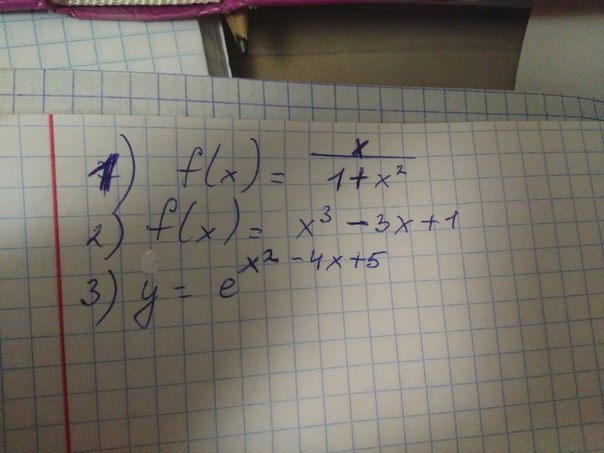 1) f(x) = x / (1 + x²)
2) f(x) = x³ - 3x + 1
3) y = e^(x² - 4x + 5)